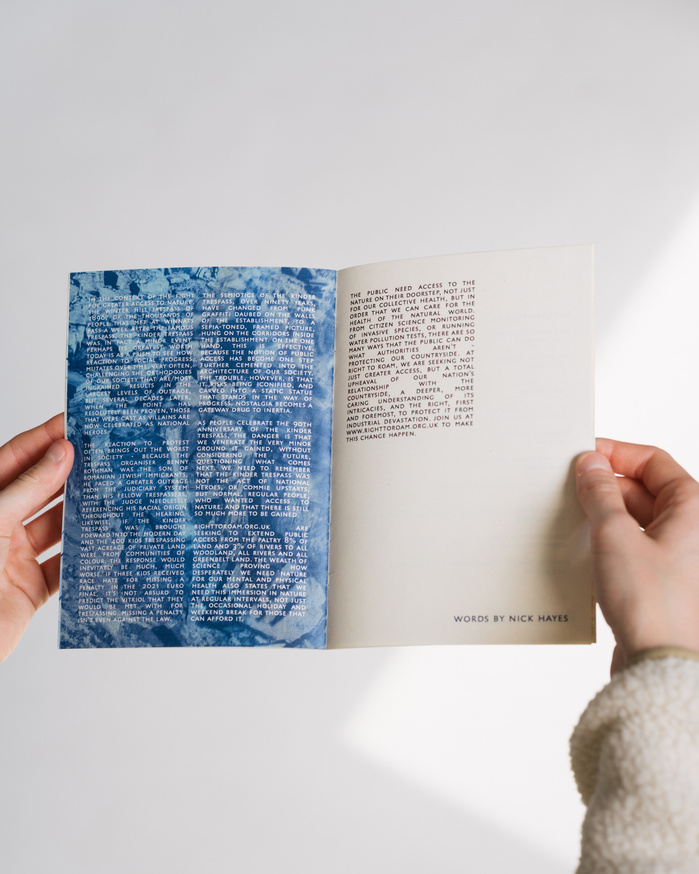 IN THE CONTEXT OF THE FIGHT
FOR GREATER ACCESS TO NATURE,
THE WINTER HILL TRESPASS OF
1896, OR THE THOUSANDS OF
PEOPLE THAT MET AT WINNATS
PASS A WEEK AFTER THE FAMOUS
TRESPASS, THE KINDER TRESPASS
WAS IN FACT A MINOR EVENT.
PERHAPS ITS GREATEST WORTH
TODAY IS AS A PRISM TO SEE HOW
REACTION TO SOCIAL PROGRESS
MUTATES OVER TIME. VERY OFTEN,
CHALLENGING THE ORTHODOXIES
OF OUR SOCIETY THAT ARE MOST
INGRAINED RESULTS IN THE
LARGEST LEVELS OF OUTRAGE,
BUT SEVERAL DECADES LATER,
WHEN THE POINT HAS
RESOLUTELY BEEN PROVEN, THOSE
THAT WERE CAST AS VILLAINS ARE
NOW CELEBRATED AS NATIONAL
HEROES.
THE REACTION TO PROTEST
OFTEN BRINGS OUT THE WORST
IN SOCIETY - BECAUSE THE
TRESPASS ORGANISER BENNY
ROTHMAN WAS THE SON OF
ROMANIAN JEWISH IMMIGRANTS,
HE FACED A GREATER OUTRAGE
FROM THE JUDICIARY SYSTEM
THAN HIS FELLOW TRESPASSERS,
WITH THE JUDGE NEEDLESSLY
REFERENCING HIS RACIAL ORIGIN
THROUGHOUT THE HEARING.
LIKEWISE, IF THE KINDER
TRESPASS WAS BROUGHT
FORWARD INTO THE MODERN DAY
AND THE 400 KIDS TRESPASSING
VAST ACREAGE OF PRIVATE LAND
WERE FROM COMMUNITIES OF
COLOUR, THE RESPONSE WOULD
INEVITABLY BE MUCH, MUCH
WORSE. IF THREE KIDS RECEIVED
RACE HATE FOR MISSING A
PENALTY IN THE 2021 EURO
FINAL, IT'S NOT ABSURD TO
PREDICT THE VITRIOL THAT THEY
WOULD BE MET WITH FOR
TRESPASSING. MISSING A PENALTY
ISN'T EVEN AGAINST THE LAW.
THE SEMIOTICS OF THE KINDER
TRESPASS, OVER NINETY YEARS,
HAVE CHANGED FROM PUNK
GRAFFITI DAUBED ON THE WALLS
OF THE ESTABLISHMENT, TO A
SEPIA-TONED, FRAMED PICTURE
HUNG ON THE CORRIDORS INSIDE
THE ESTABLISHMENT. ON THE ONE
HAND, THIS IS EFFECTIVE,
BECAUSE THE NOTION OF PUBLIC
ACCESS HAS BECOME ONE STEP
FURTHER CEMENTED INTO THE
ARCHITECTURE OF OUR SOCIETY.
THE TROUBLE, HOWEVER, IS THAT
IT RISKS BEING ICONIFIED, AND
CARVED INTO A STATIC STATUS
THAT STANDS IN THE WAY OF
PROGRESS. NOSTALGIA BECOMES A
GATEWAY DRUG TO INERTIA.
AS PEOPLE CELEBRATE THE 90TH
ANNIVERSARY OF THE KINDER
TRESPASS, THE DANGER IS THAT
WE VENERATE THE VERY MINOR
GROUND IT GAINED, WITHOUT
CONSIDERING THE FUTURE,
QUESTIONING WHAT COMES
NEXT. WE NEED TO REMEMBER
THAT THE KINDER TRESPASS WAS
NOT THE ACT OF NATIONAL
HEROES, OR COMMIE UPSTARTS,
BUT NORMAL, REGULAR PEOPLE,
WHO WANTED ACCESS TO
NATURE. AND THAT THERE IS STILL
SO MUCH MORE TO BE GAINED.
RIGHTTOROAM.ORG.UK ARE
SEEKING TO EXTEND PUBLIC
ACCESS FROM THE PALTRY 8% OF
LAND AND 3% OF RIVERS TO ALL
WOODLAND, ALL RIVERS AND ALL
GREENBELT LAND. THE WEALTH OF
SCIENCE PROVING HOW
DESPERATELY WE NEED NATURE
FOR OUR MENTAL AND PHYSICAL
HEALTH ALSO STATES THAT WE
NEED THIS IMMERSION IN NATURE
AT REGULAR INTERVALS, NOT JUST
THE OCCASIONAL HOLIDAY AND
WEEKEND BREAK FOR THOSE THAT
CAN AFFORD IT.
THE PUBLIC NEED ACCESS TO THE
NATURE ON THEIR DOORSTEP, NOT JUST
FOR OUR COLLECTIVE HEALTH, BUT IN
ORDER THAT WE CAN CARE FOR THE
HEALTH OF THE NATURAL WORLD.
FROM CITIZEN SCIENCE MONITORING
OF INVASIVE SPECIES, OR RUNNING
WATER POLLUTION TESTS, THERE ARE SO
MANY WAYS THAT THE PUBLIC CAN DO
WHAT AUTHORITIES AREN'T -
PROTECTING OUR COUNTRYSIDE. AT
RIGHT TO ROAM, WE ARE SEEKING NOT
JUST GREATER ACCESS, BUT A TOTAL
UPHEAVAL OF OUR NATION'S
RELATIONSHIP WITH THE
COUNTRYSIDE, A DEEPER, MORE
CARING UNDERSTANDING OF ITS
INTRICACIES, AND THE RIGHT, FIRST
AND FOREMOST, TO PROTECT IT FROM
INDUSTRIAL DEVASTATION. JOIN US AT
WWW.RIGHTTOROAM.ORG.UK TO MAKE
THIS CHANGE HAPPEN.
WORDS BY NICK HAYES